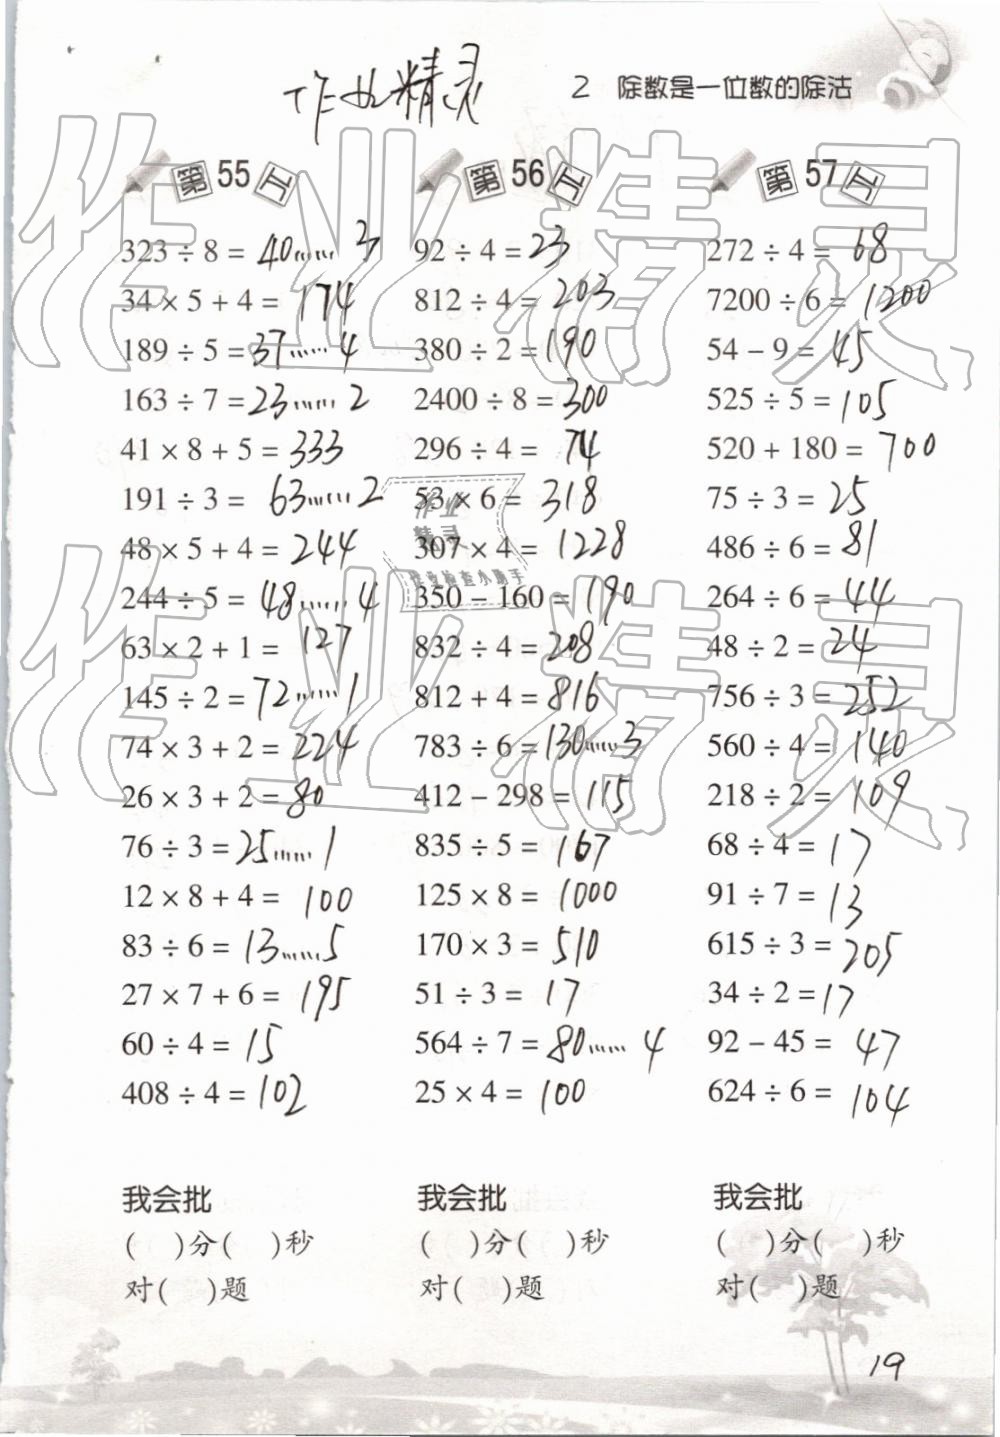 作业精灵
2 除数是一位数的除法
第55工
323 ÷ 8 = 40……3
34 × 5 + 4 = 174
189 ÷ 5 = 37……4
163 ÷ 7 = 23……2
41 × 8 + 5 = 333
191 ÷ 3 = 63……2
48 × 5 + 4 = 244
244 ÷ 5 = 48……4
63 × 2 + 1 = 127
145 ÷ 2 = 72……1
74 × 3 + 2 = 224
26 × 3 + 2 = 80
76 ÷ 3 = 25……1
12 × 8 + 4 = 100
83 ÷ 6 = 13……5
27 × 7 + 6 = 195
60 ÷ 4 = 15
408 ÷ 4 = 102
我会批
( )分( )秒
对( )题
第56工
92 ÷ 4 = 23
812 ÷ 4 = 203
380 ÷ 2 = 190
2400 ÷ 8 = 300
296 ÷ 4 = 74
53 × 6 = 318
307 × 4 = 1228
350 − 160 = 190
832 ÷ 4 = 208
812 + 4 = 816
783 ÷ 6 = 130……3
412 − 298 = 115
835 ÷ 5 = 167
125 × 8 = 1000
170 × 3 = 510
51 ÷ 3 = 17
564 ÷ 7 = 80……4
25 × 4 = 100
我会批
( )分( )秒
对( )题
第57工
272 ÷ 4 = 68
7200 ÷ 6 = 1200
54 − 9 = 45
525 ÷ 5 = 105
520 + 180 = 700
75 ÷ 3 = 25
486 ÷ 6 = 81
264 ÷ 6 = 44
48 ÷ 2 = 24
756 ÷ 3 = 252
560 ÷ 4 = 140
218 ÷ 2 = 109
68 ÷ 4 = 17
91 ÷ 7 = 13
615 ÷ 3 = 205
34 ÷ 2 = 17
92 − 45 = 47
624 ÷ 6 = 104
我会批
( )分( )秒
对( )题
19
作业精灵
作业精灵
作业
精灵
作业检查小助手